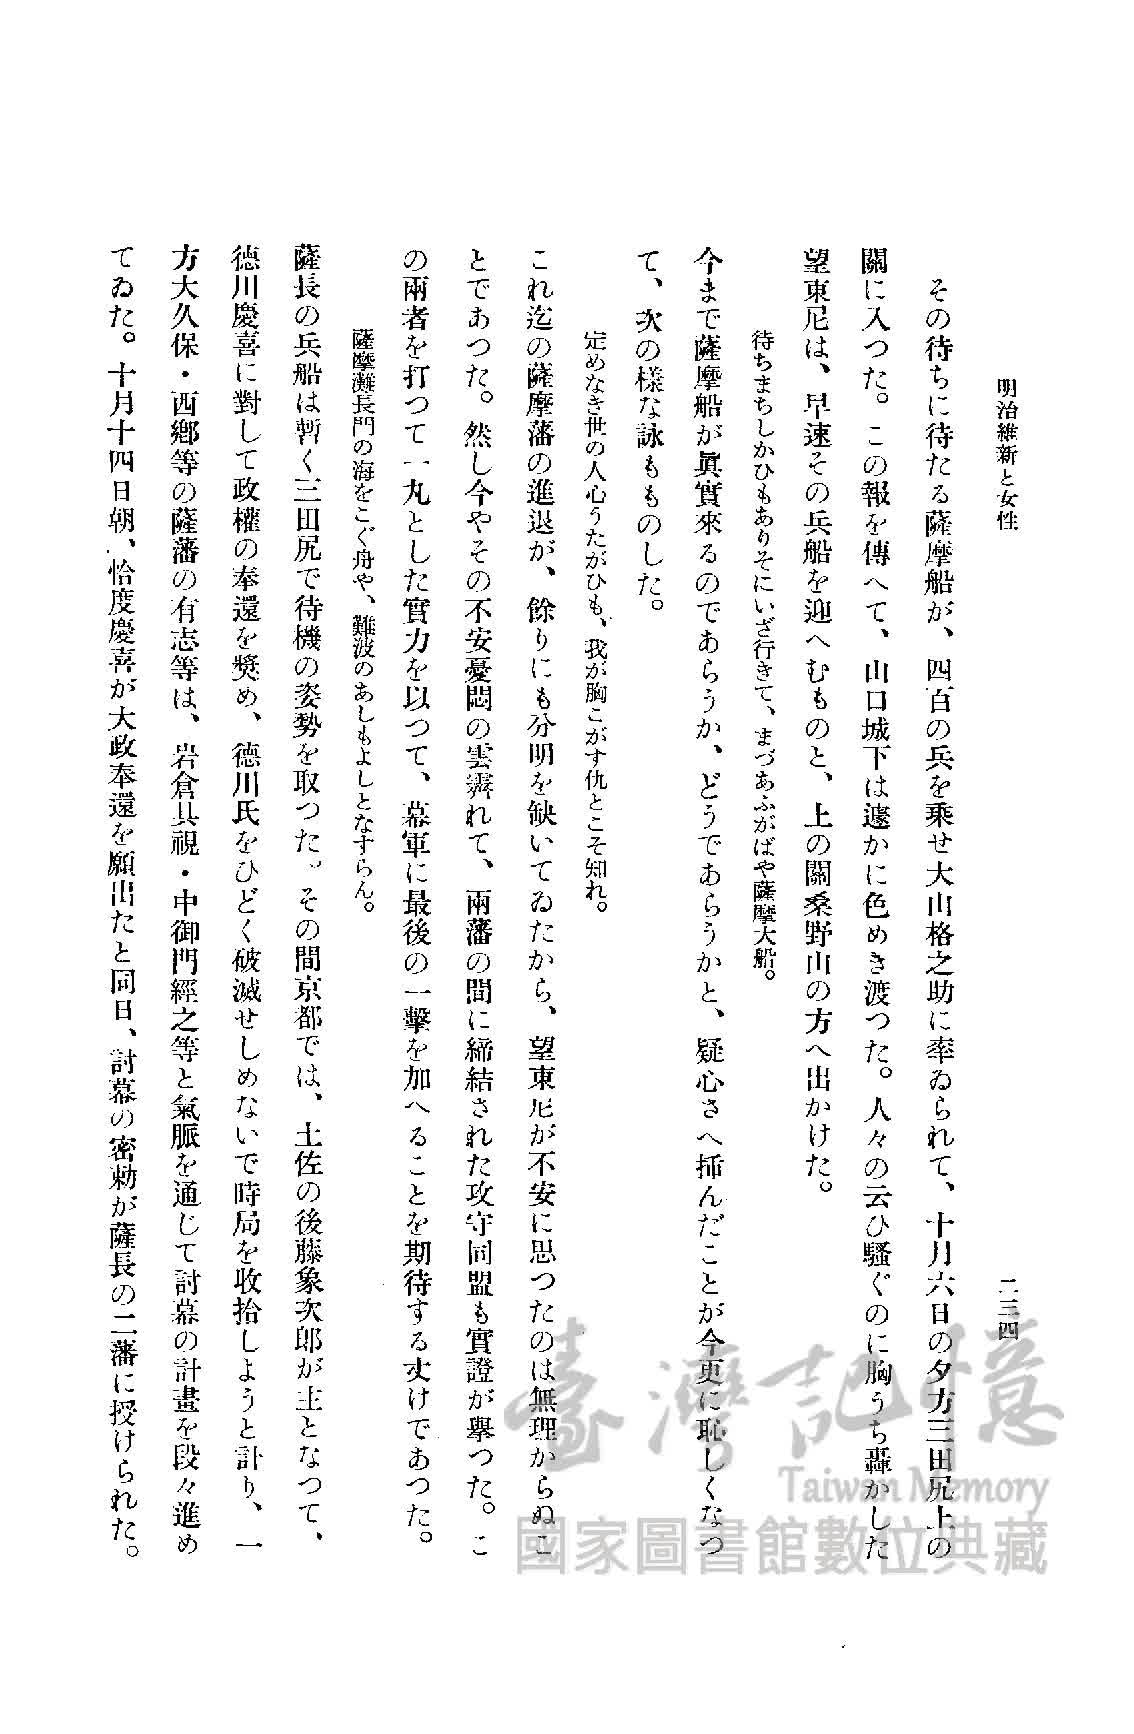 明治維新と女性
二三四
その待ちに待たる薩摩船が、四百の兵を乘せ大山格之助に率ゐられて、十月六日の夕方三田尻上の
關に入つた。この報を傳へて、山口城下は遽かに色めき渡つた。人々の云ひ騷ぐのに胸うち轟かした
望東尼は、早速その兵船を迎へむものと、上の關桑野山の方へ出かけた。
待ちまちしかひもありそにいざ行きて、まづあふがばや薩摩大船。
今まで薩摩船が眞實來るのであらうか、どうであらうかと、疑心さへ揷んだことが今更に恥しくなつ
て、次の樣な詠もものした。
定めなき世の人心うたがひも、我が胸こがす仇とこそ知れ。
これ迄の薩摩藩の進退が、餘りにも分明を缺いてゐたから、望東尼が不安に思つたのは無理からぬこ
とであつた。然し今やその不安憂悶の雲霽れて、兩藩の間に締結された攻守同盟も實證が擧つた。こ
の兩者を打つて一丸とした實力を以つて、幕軍に最後の一擊を加へることを期待する丈けであつた。
薩摩灘長門の海をこぐ舟や、難波のあしもよしとなすらん。
薩長の兵船は暫く三田尻で待機の姿勢を取つた。その間京都では、土佐の後藤象次郎が主となつて、
德川慶喜に對して政權の奉還を奬め、德川氏をひどく破滅せしめないで時局を收拾しようと計り、一
方大久保・西鄕等の薩藩の有志等は、岩倉具視・中御門經之等と氣脈を通じて討幕の計畫を段々進め
てゐた。十月十四日朝、恰度慶喜が大政奉還を願出たと同日、討幕の密勅が薩長の二藩に授けられた。
臺灣記憶
Taiwan Memory
國家圖書館數位典藏